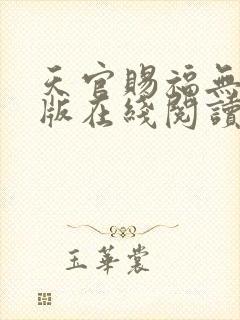 天官賜福無
版在綫閱讀
玉華裳